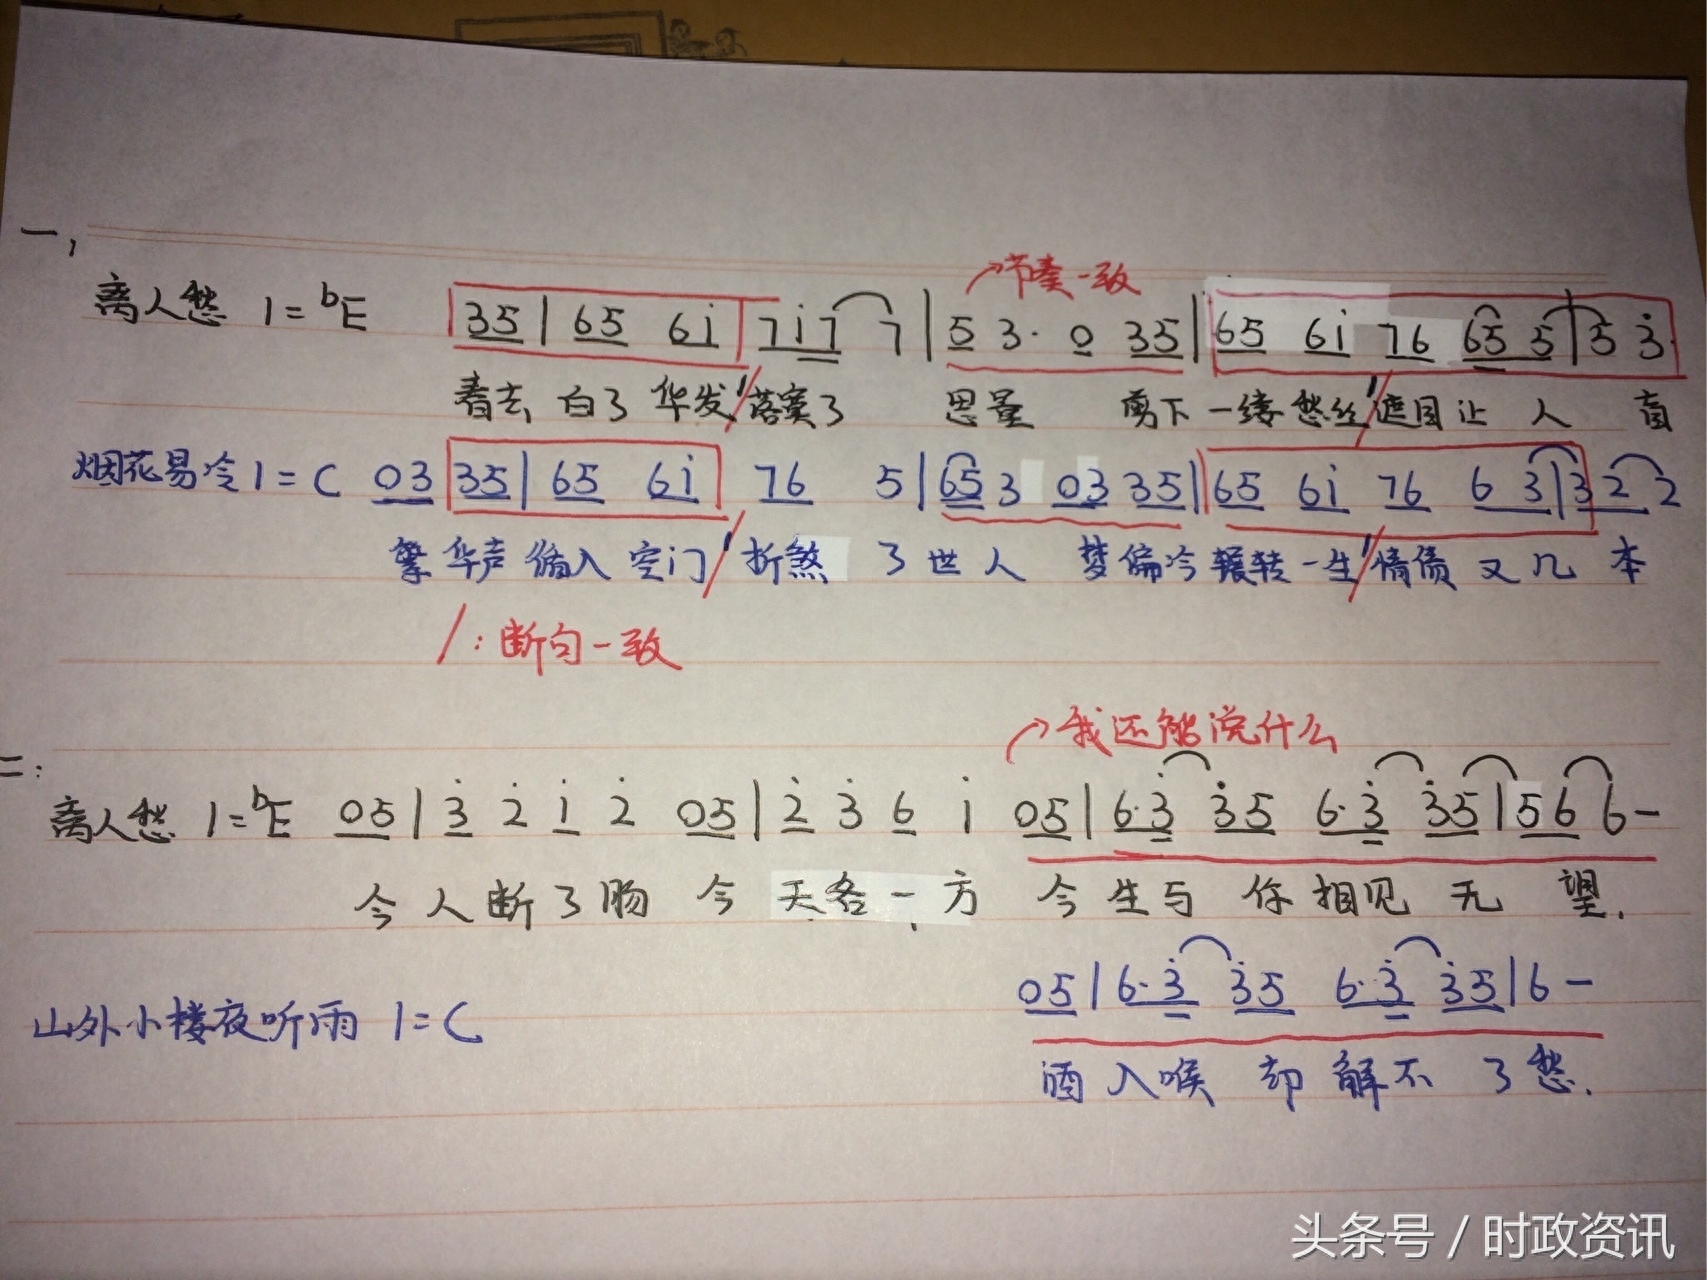 一、
节奏一致
离人愁 1=ᵇE 35 | 65 6i 7i7 7 | 5 3· 0 35 | 65 6i 76 65 5 | 5 3·
看去 白了 华发 ' / 落寞了 思量 剪下 一缕愁丝 ' / 遮目让 人 盲
烟花易冷 1=C 03 35 | 65 6i 76 5 | 65 3 03 35 | 65 6i 76 6 3 | 3 2 2
繁华声 遁入 空门 ' / 折煞 了世人 梦偏冷 辗转一生 ' / 情债 又几 本
/：断句一致
我还能说什么
二：
离人愁 1=ᵇE 05 | 3̇ 2̇ i 2̇ 05 | 2̇ 3̇ 6 i 05 | 6·3̇ 3̇5 6·3̇ 3̇5 | 56 6 –
今人断了肠 今 天各一方 今生与 你相见 无 望.
05 | 6·3̇ 3̇5 6·3̇ 3̇5 | 6 –
山外小楼夜听雨 1=C
酒入喉 却解不 了愁.
头条号 / 时政资讯